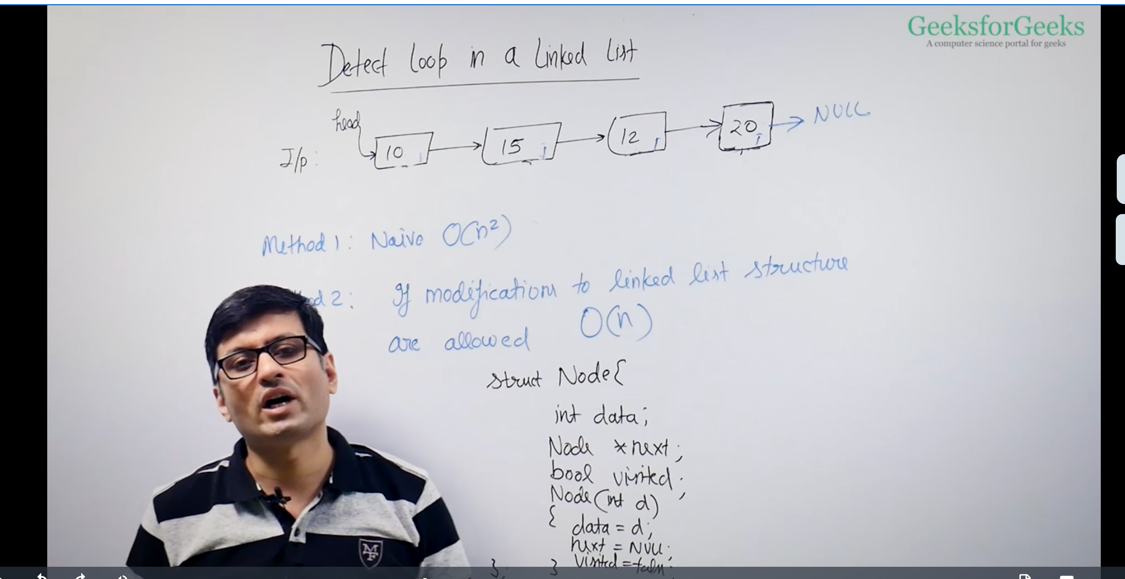 GeeksforGeeks
A computer science portal for geeks
Detect Loop in a Linked List
head
I/p: 10 15 12 20 NULL
Method 1: Naive O(n²)
d 2: If modifications to linked list structure
are allowed O(n)
struct Node{
int data;
Node *next;
bool visited;
Node(int d)
{ data = d;
next = NULL;
}; } visited = false;